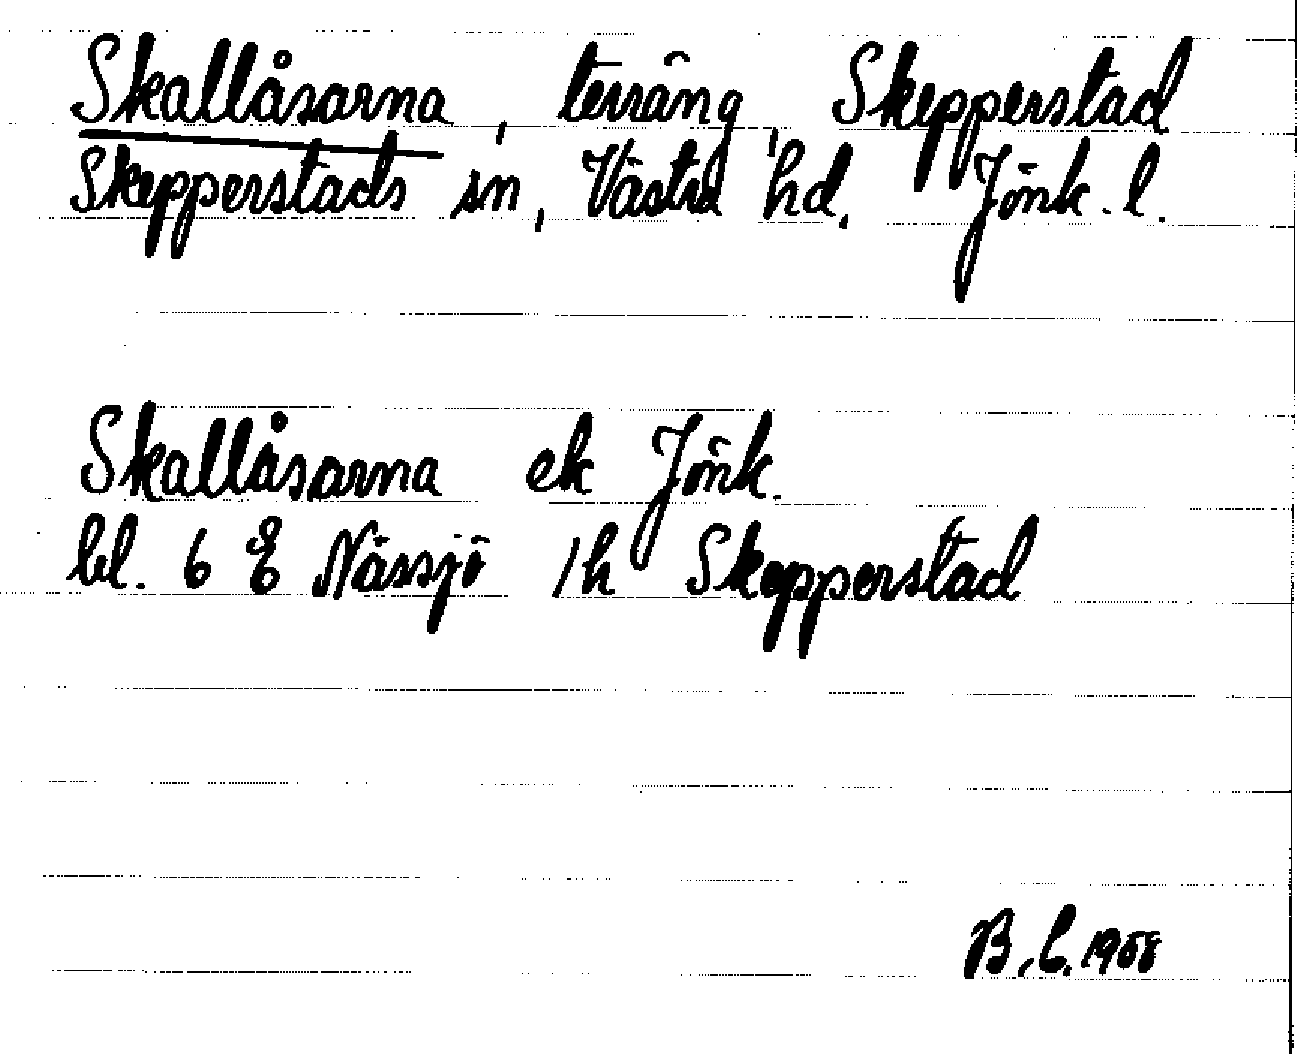 Skallåsarna, terräng, Skepperstad
Skepperstads sn, Västra hd. Jönk. l.
Skallåsarna ek Jönk.
bl. 6 E Nässjö 1h Skepperstad